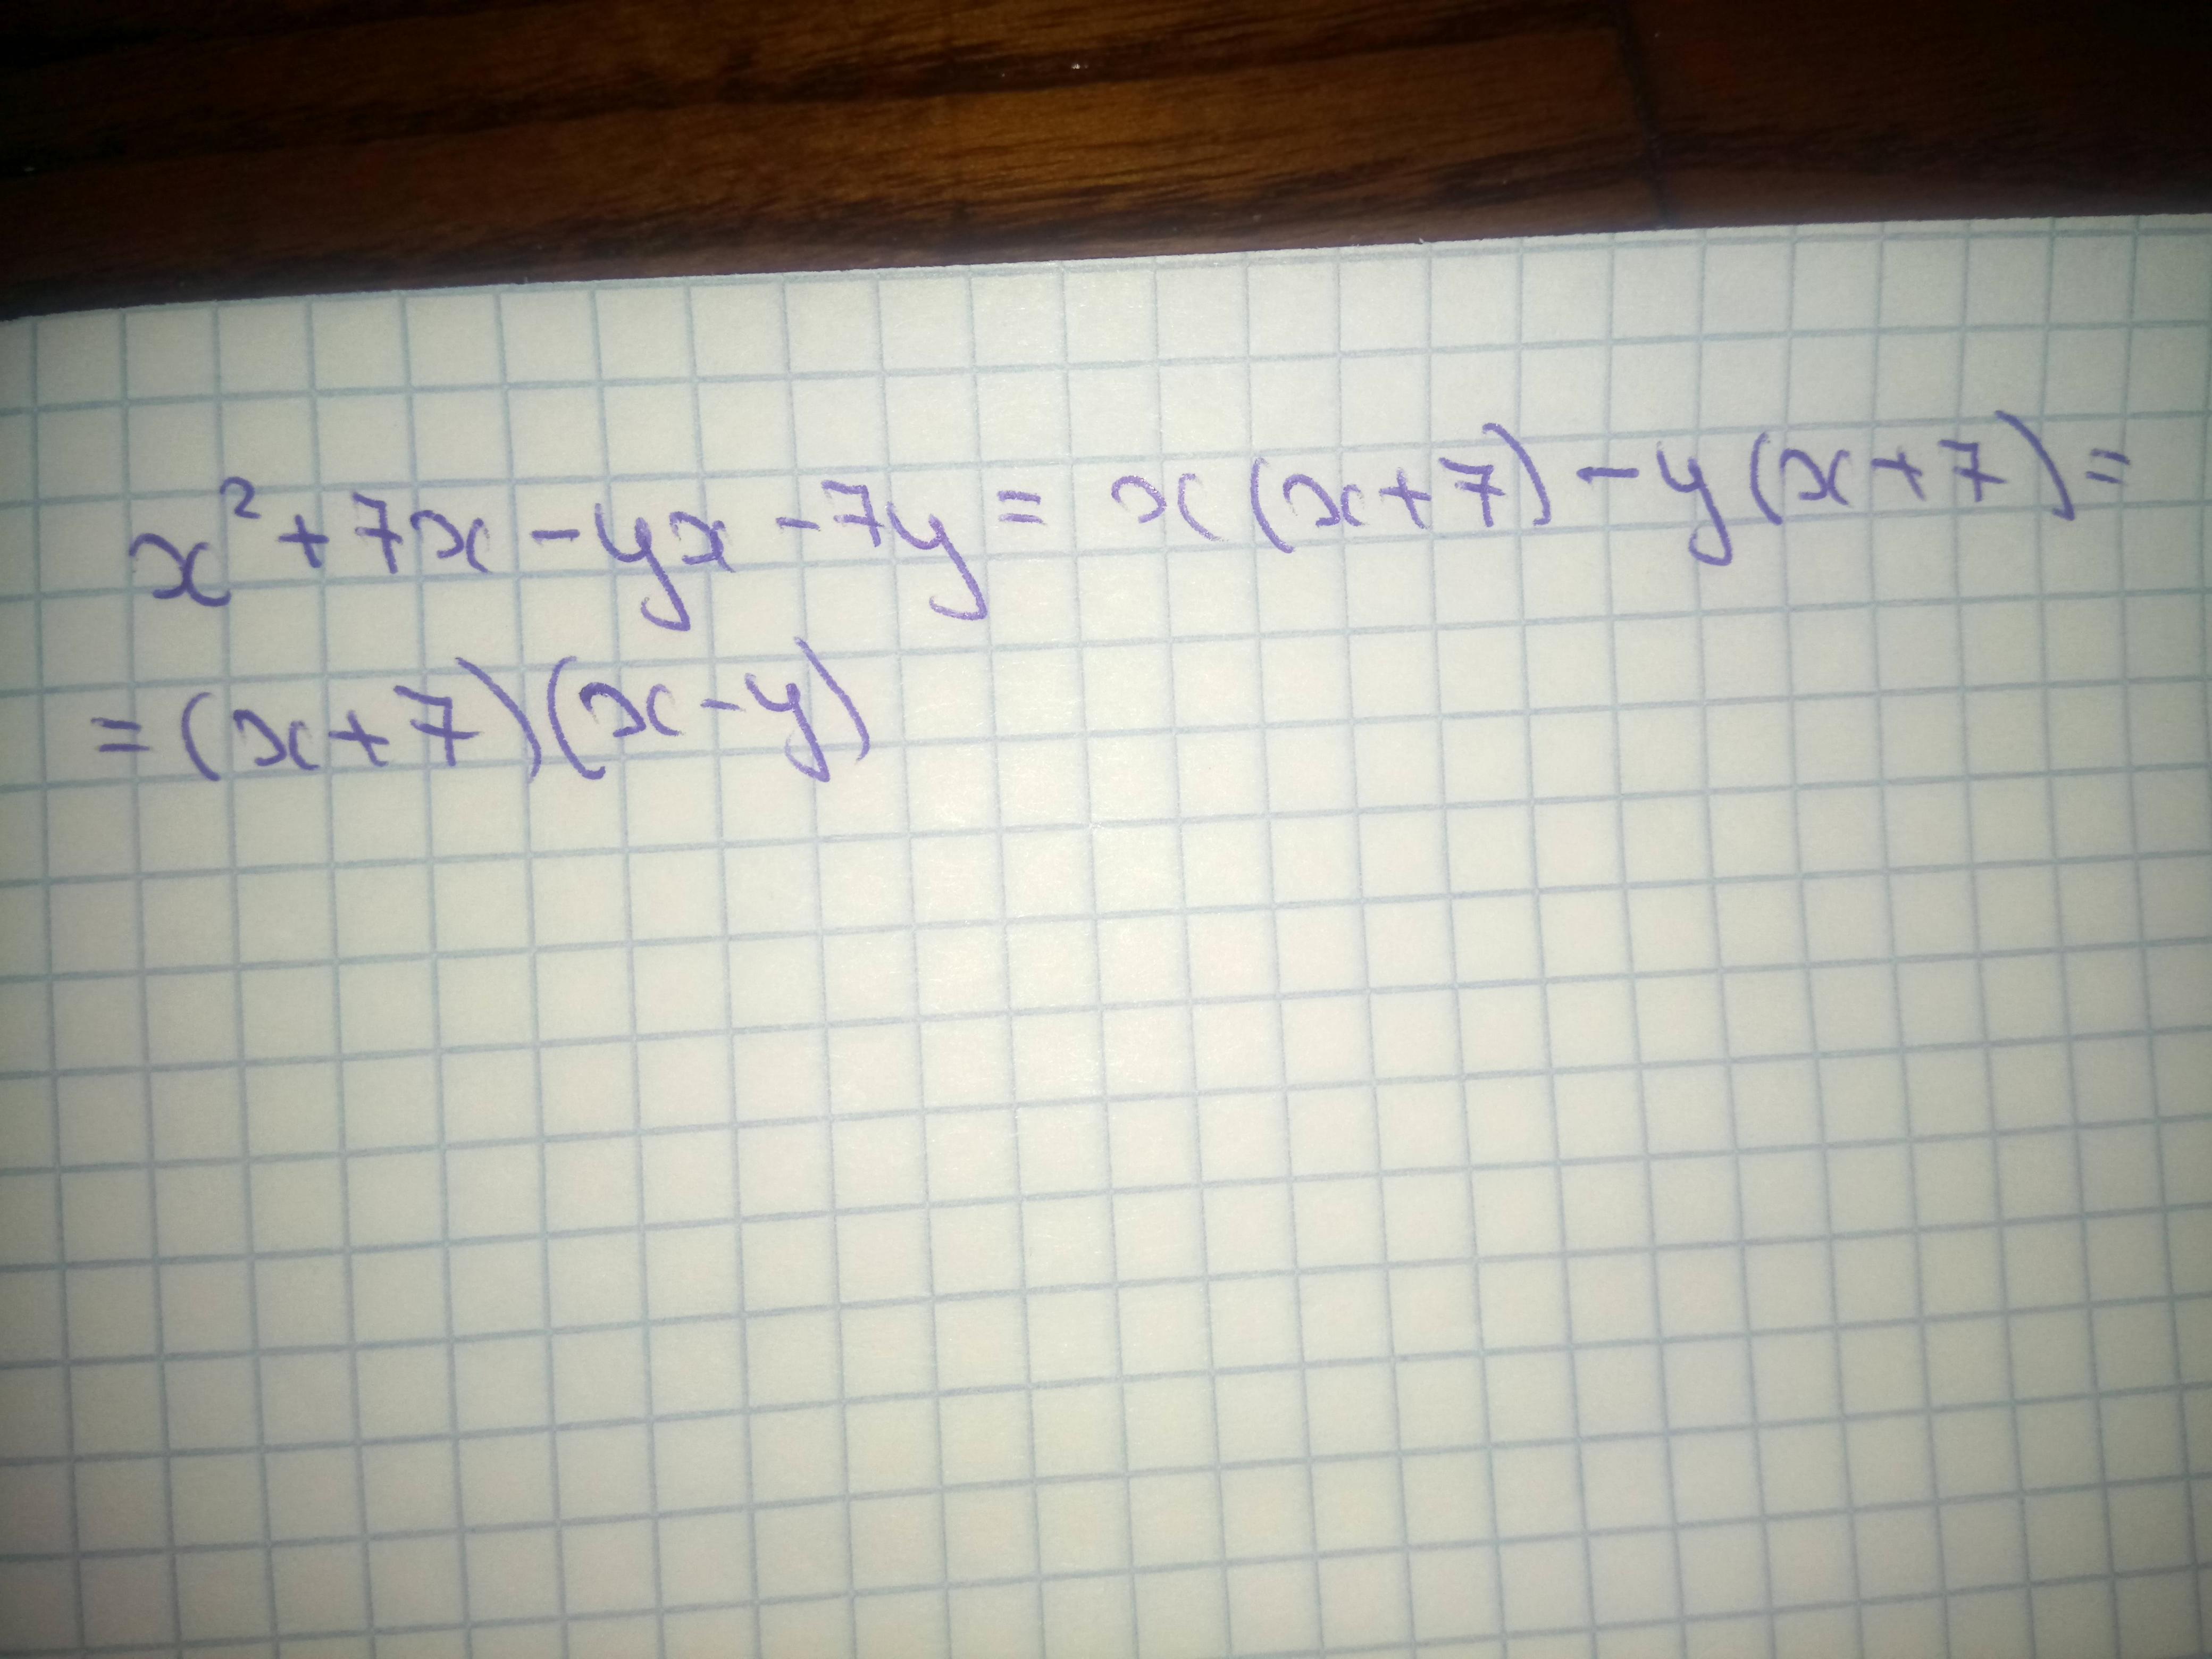 x² + 7x - yx - 7y = x(x+7) - y(x+7) =
= (x+7)(x-y)